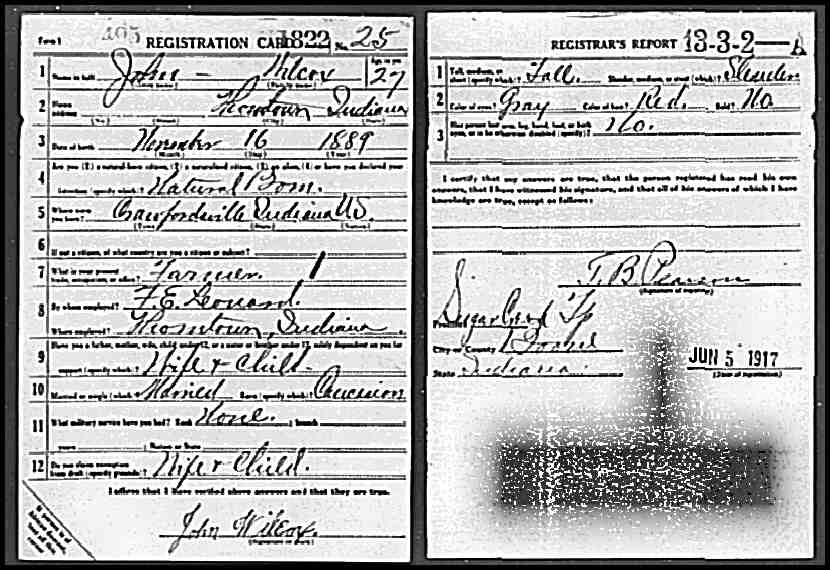 Form 1 405 REGISTRATION CARD 1822 No. 25
1 Name in full John — Wilcox Age, in yrs. 27
2 Home address Thorntown Indiana
3 Date of birth November 16 1889
(Month) (Day) (Year)
4 Are you (1) a natural-born citizen, (2) a naturalized citizen, (3) an alien, (4) or have you declared your
intention (specify which)? Natural Born.
5 Where were you born? Crawfordsville Indiana US.
(Town) (State) (Nation)
6 If not a citizen, of what country are you a citizen or subject?
7 What is your present trade, occupation, or office? Farmer. 1
8 By whom employed? F. E. Leonard.
Where employed? Thorntown, Indiana
9 Have you a father, mother, wife, child under 12, or a sister or brother under 12, solely dependent on you for
support (specify which)? Wife & Child.
10 Married or single (which)? Married Race (specify which)? Caucasion
11 What military service have you had? Rank None. ; branch
years ; Nation or State
12 Do you claim exemption from draft (specify grounds)? Wife & Child.
I affirm that I have verified above answers and that they are true.
John Wilcox.
(Signature or mark)
REGISTRAR'S REPORT 13-3-2-A
1 Tall, medium, or short (specify which)? Tall. Slender, medium, or stout (which)? Slender
2 Color of eyes? Gray Color of hair? Red. Bald? No
3 Has person lost arm, leg, hand, foot, or both eyes, or is he otherwise disabled (specify)? No.
I certify that my answers are true, that the person registered has read his own
answers, that I have witnessed his signature, and that all of his answers of which I have
knowledge are true, except as follows:
(Signature of registrar)
Precinct Sugar Creek Tp
City or County Boone
State Indiana
JUN 5 1917
(Date of registration)